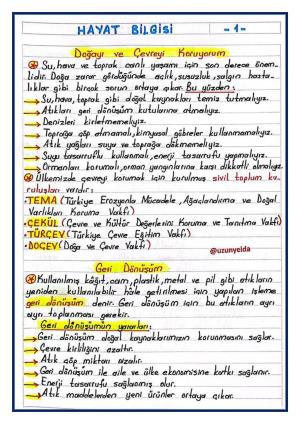 HAYAT BİLGİSİ -1-
Doğayı ve Çevreyi Koruyorum
Su, hava ve toprak canlı yaşamı için son derece önem-
lidir. Doğa zarar gördüğünde açlık, susuzluk, salgın hasta-
lıklar gibi birçok sorun ortaya çıkar. Bu yüzden;
Su, hava, toprak gibi doğal kaynakları temiz tutmalıyız.
Atıkları geri dönüşüm kutularına atmalıyız.
Denizleri kirletmemeliyiz.
Toprağa çöp atmamalı, kimyasal gübreler kullanmamalıyız.
Atık yağları suya ve toprağa dökmemeliyiz.
Suyu tasarruflu kullanmalı, enerji tasarrufu yapmalıyız.
Ormanları korumalı, orman yangınlarına karşı dikkatli olmalıyız.
Ülkemizde çevreyi korumak için kurulmuş sivil toplum ku-
ruluşları vardır:
•TEMA (Türkiye Erozyonla Mücadele, Ağaçlandırma ve Doğal
Varlıkları Koruma Vakfı)
•ÇEKÜL (Çevre ve Kültür Değerlerini Koruma ve Tanıtma Vakfı)
•TÜRÇEV (Türkiye Çevre Eğitim Vakfı)
•DOÇEV (Doğa ve Çevre Vakfı)
@uzunyelda
Geri Dönüşüm
Kullanılmış kâğıt, cam, plastik, metal ve pil gibi atıkların
yeniden kullanılabilir hâle getirilmesi için yapılan işleme
geri dönüşüm denir. Geri dönüşüm için bu atıkların ayrı
ayrı toplanması gerekir.
Geri dönüşümün yararları;
Geri dönüşüm doğal kaynaklarımızın korunmasını sağlar.
Çevre kirliliğini azaltır.
Atık çöp miktarı azalır.
Geri dönüşüm ile aile ve ülke ekonomisine katkı sağlanır.
Enerji tasarrufu sağlanmış olur.
Atık maddelerden yeni ürünler ortaya çıkar.